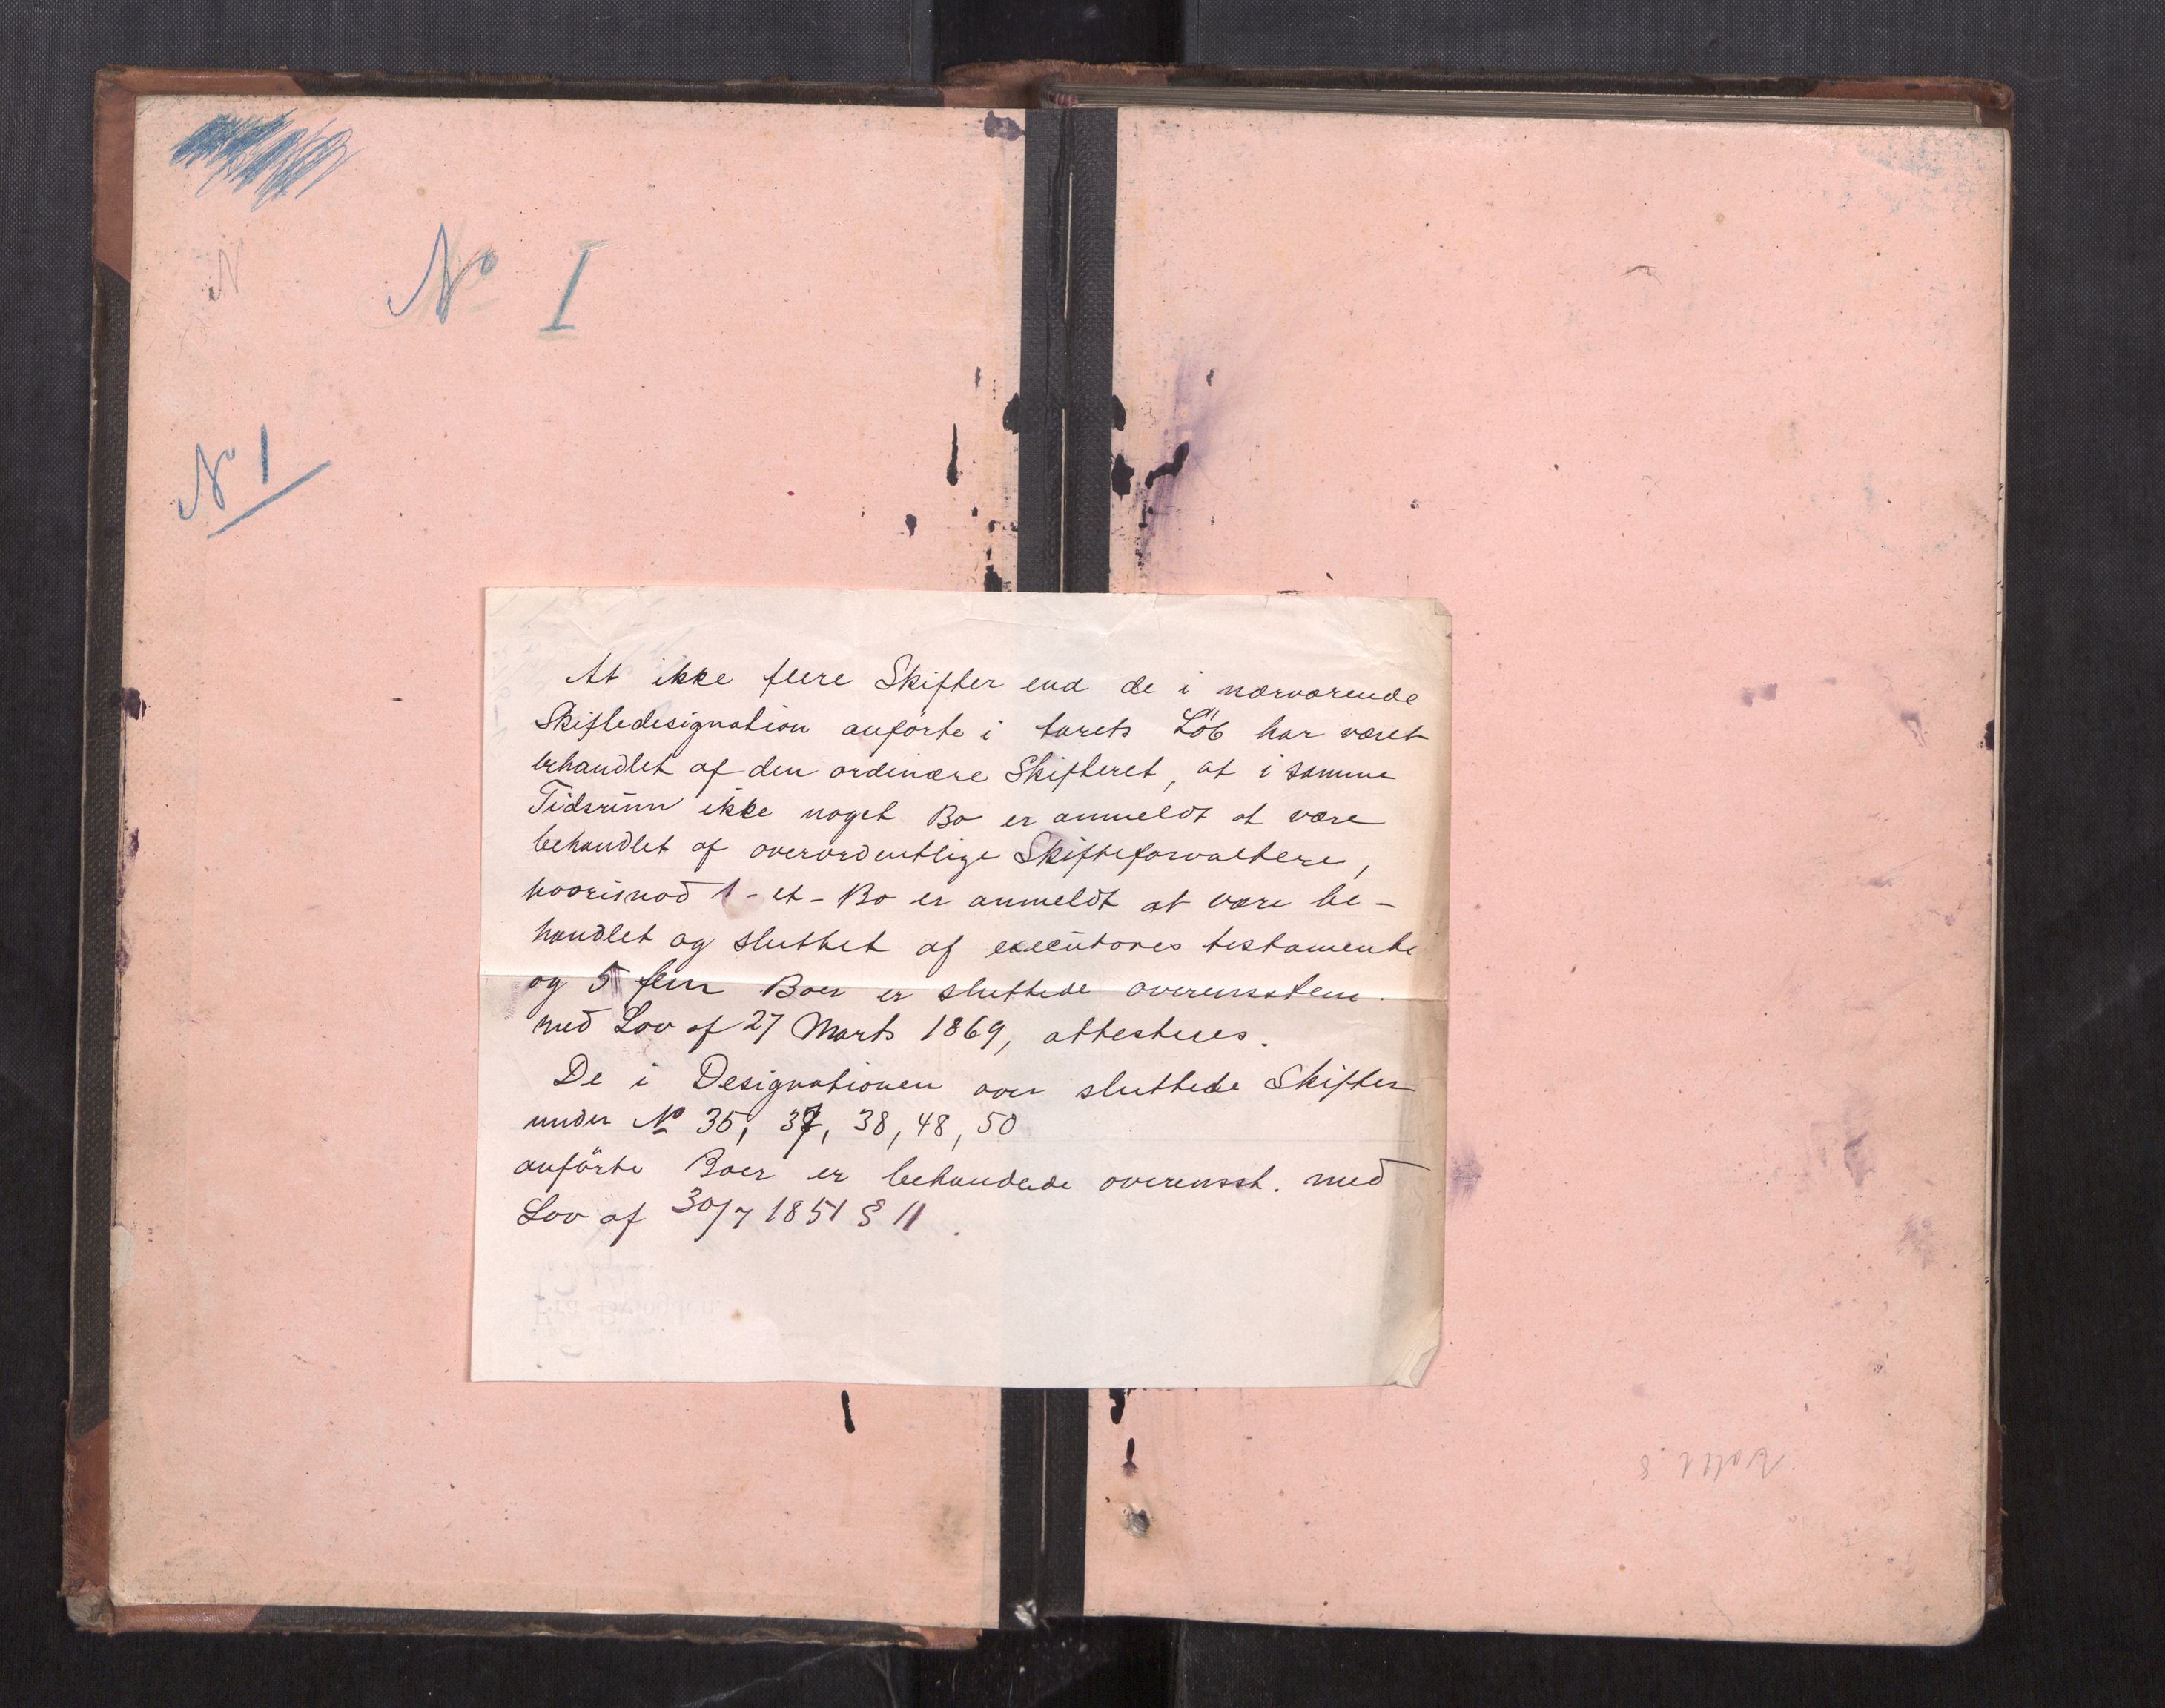 N
No I
No 1
At ikke flere Skifter end de i nærværende
Skiftedesignation anførte i Aarets Løb har været
behandlet af den ordinære Skifteret, at i samme
Tidsrum ikke noget Bo er anmeldt at være
behandlet af overordentlige Skifteforvaltere,
hvorimod 1 - et - Bo er anmeldt at være be-
handlet og sluttet af executores testamenti
og 5 fem Boer er sluttede overensstem.
med Lov af 27 Marts 1869, attesteres.
De i Designationen over sluttede Skifter
under No 35, 37, 38, 48, 50
anförte Boer er behandlede overensst. med
Lov af 30/7 1851 § 11.